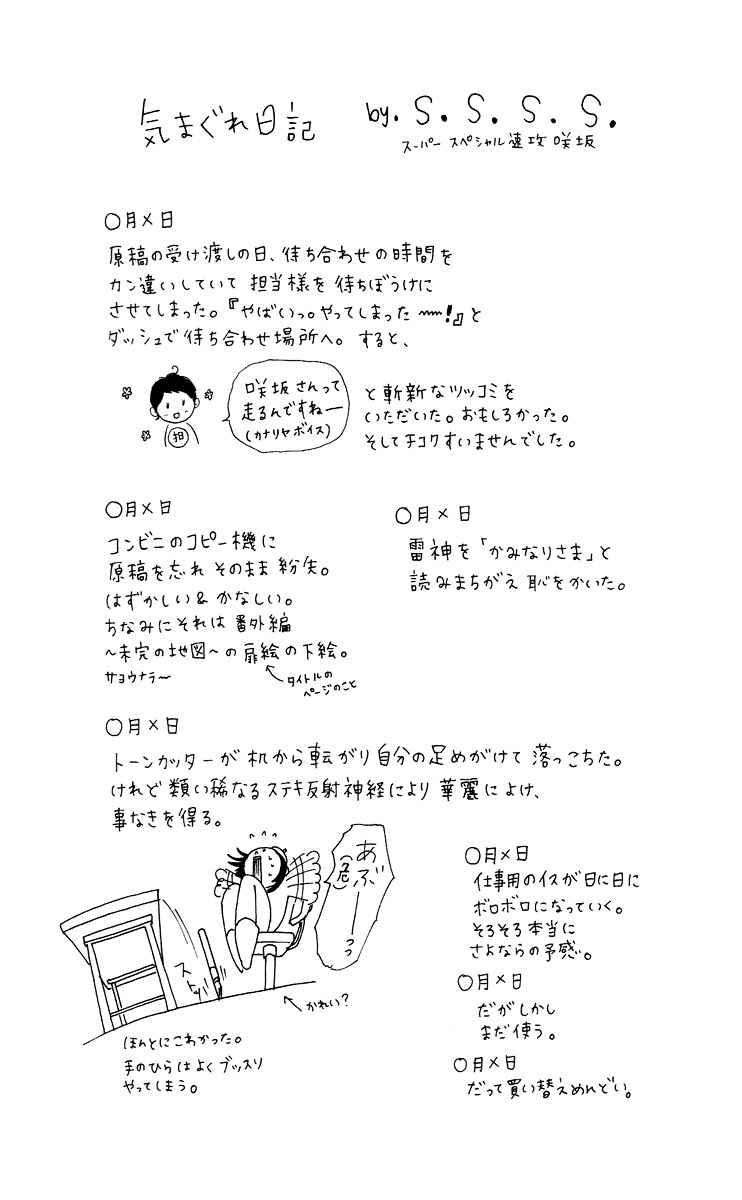 気まぐれ日記 by. S. S. S. S.
スーパー スペシャル 速攻 咲坂
○月×日
原稿の受け渡しの日、待ち合わせの時間を
カン違いしていて 担当様を 待ちぼうけに
させてしまった。『やばいっ。やってしまった〰!』と
ダッシュで待ち合わせ場所へ。すると、
担
咲坂さんって
走るんですねー
(カナリヤボイス)
と斬新なツッコミを
いただいた。おもしろかった。
そしてチコクすいませんでした。
○月×日
コンビニのコピー機に
原稿を忘れ そのまま 紛失。
はずかしい & かなしい。
ちなみにそれは 番外編
~未完の地図~の扉絵の下絵。
サヨウナラ~
タイトルの
ページのこと
○月×日
雷神を「かみなりさま」と
読みまちがえ 恥をかいた。
○月×日
トーンカッターが 机から転がり自分の足めがけて 落っこちた。
けれど 類い稀なる ステキ反射神経により 華麗によけ、
事なきを得る。
あぶーっっ
(危)
ストッ
かれい?
ほんとにこわかった。
手のひらはよく ブッスリ
やってしまう。
○月×日
仕事用のイスが日に日に
ボロボロになっていく。
そろそろ本当に
さよならの予感…。
○月×日
だがしかし
まだ使う。
○月×日
だって買い替えめんどい。